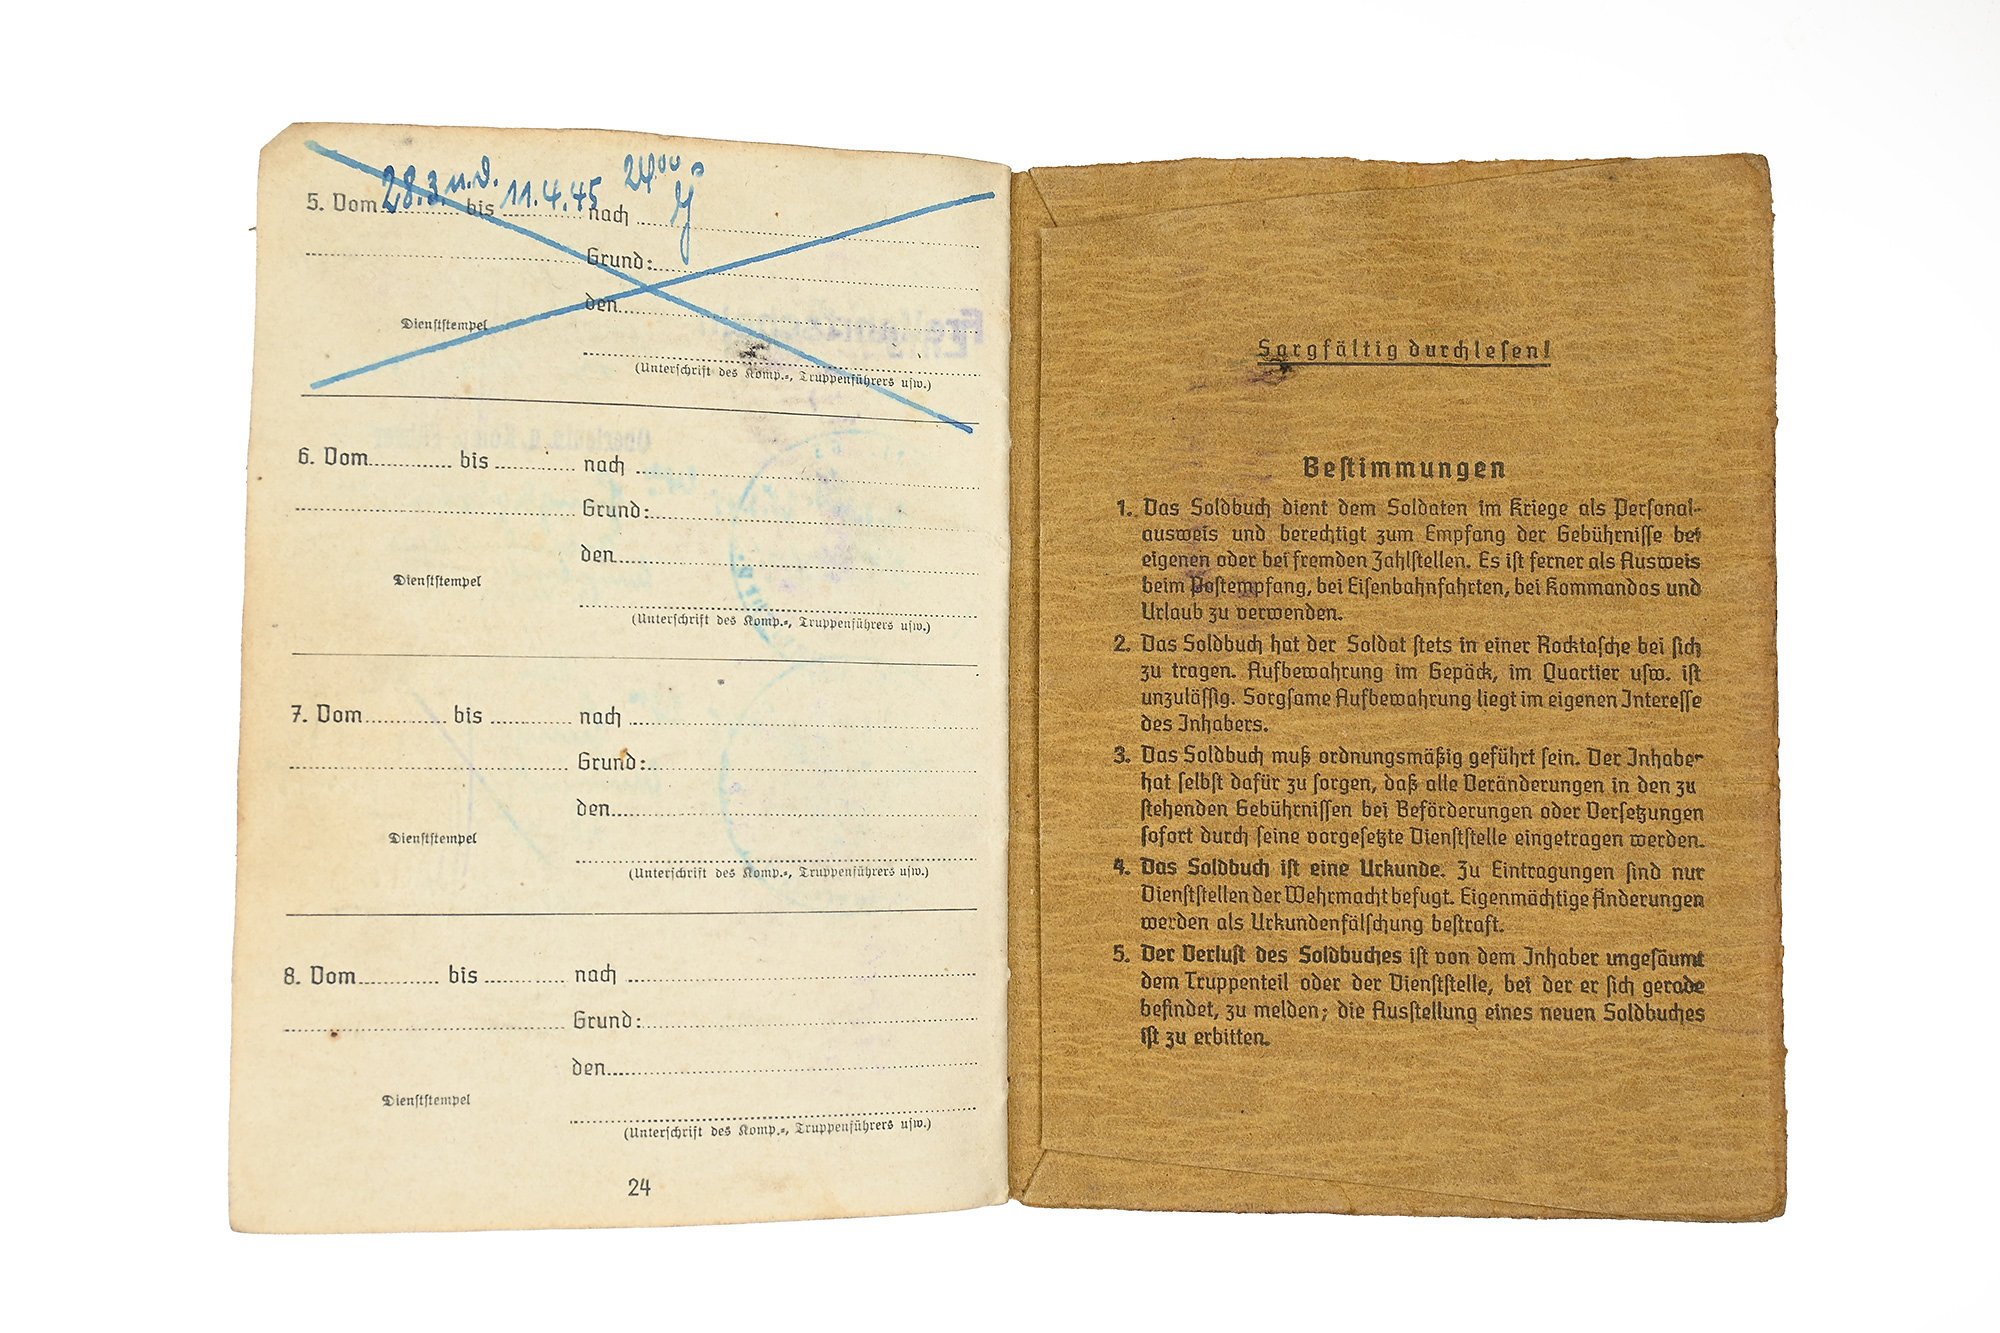 28.3. u.d. 11.4.45 24⁰⁰
5. Vom ........ bis ........ nach ........
Grund: ........
den ........
Dienststempel
(Unterschrift des Komp.-, Truppenführers usw.)
6. Vom ........ bis ........ nach ........
Grund: ........
den ........
Dienststempel
(Unterschrift des Komp.-, Truppenführers usw.)
7. Vom ........ bis ........ nach ........
Grund: ........
den ........
Dienststempel
(Unterschrift des Komp.-, Truppenführers usw.)
8. Vom ........ bis ........ nach ........
Grund: ........
den ........
Dienststempel
(Unterschrift des Komp.-, Truppenführers usw.)
24
Sorgfältig durchlesen!
Bestimmungen
1. Das Soldbuch dient dem Soldaten im Kriege als Personal-
ausweis und berechtigt zum Empfang der Gebührnisse bei
eigenen oder bei fremden Zahlstellen. Es ist ferner als Ausweis
beim Postempfang, bei Eisenbahnfahrten, bei Kommandos und
Urlaub zu verwenden.
2. Das Soldbuch hat der Soldat stets in einer Rocktasche bei sich
zu tragen. Aufbewahrung im Gepäck, im Quartier usw. ist
unzulässig. Sorgsame Aufbewahrung liegt im eigenen Interesse
des Inhabers.
3. Das Soldbuch muß ordnungsmäßig geführt sein. Der Inhaber
hat selbst dafür zu sorgen, daß alle Veränderungen in den zu
stehenden Gebührnissen bei Beförderungen oder Versetzungen
sofort durch seine vorgesetzte Dienststelle eingetragen werden.
4. Das Soldbuch ist eine Urkunde. Zu Eintragungen sind nur
Dienststellen der Wehrmacht befugt. Eigenmächtige Änderungen
werden als Urkundenfälschung bestraft.
5. Der Verlust des Soldbuches ist von dem Inhaber ungesäumt
dem Truppenteil oder der Dienststelle, bei der er sich gerade
befindet, zu melden; die Ausstellung eines neuen Soldbuches
ist zu erbitten.